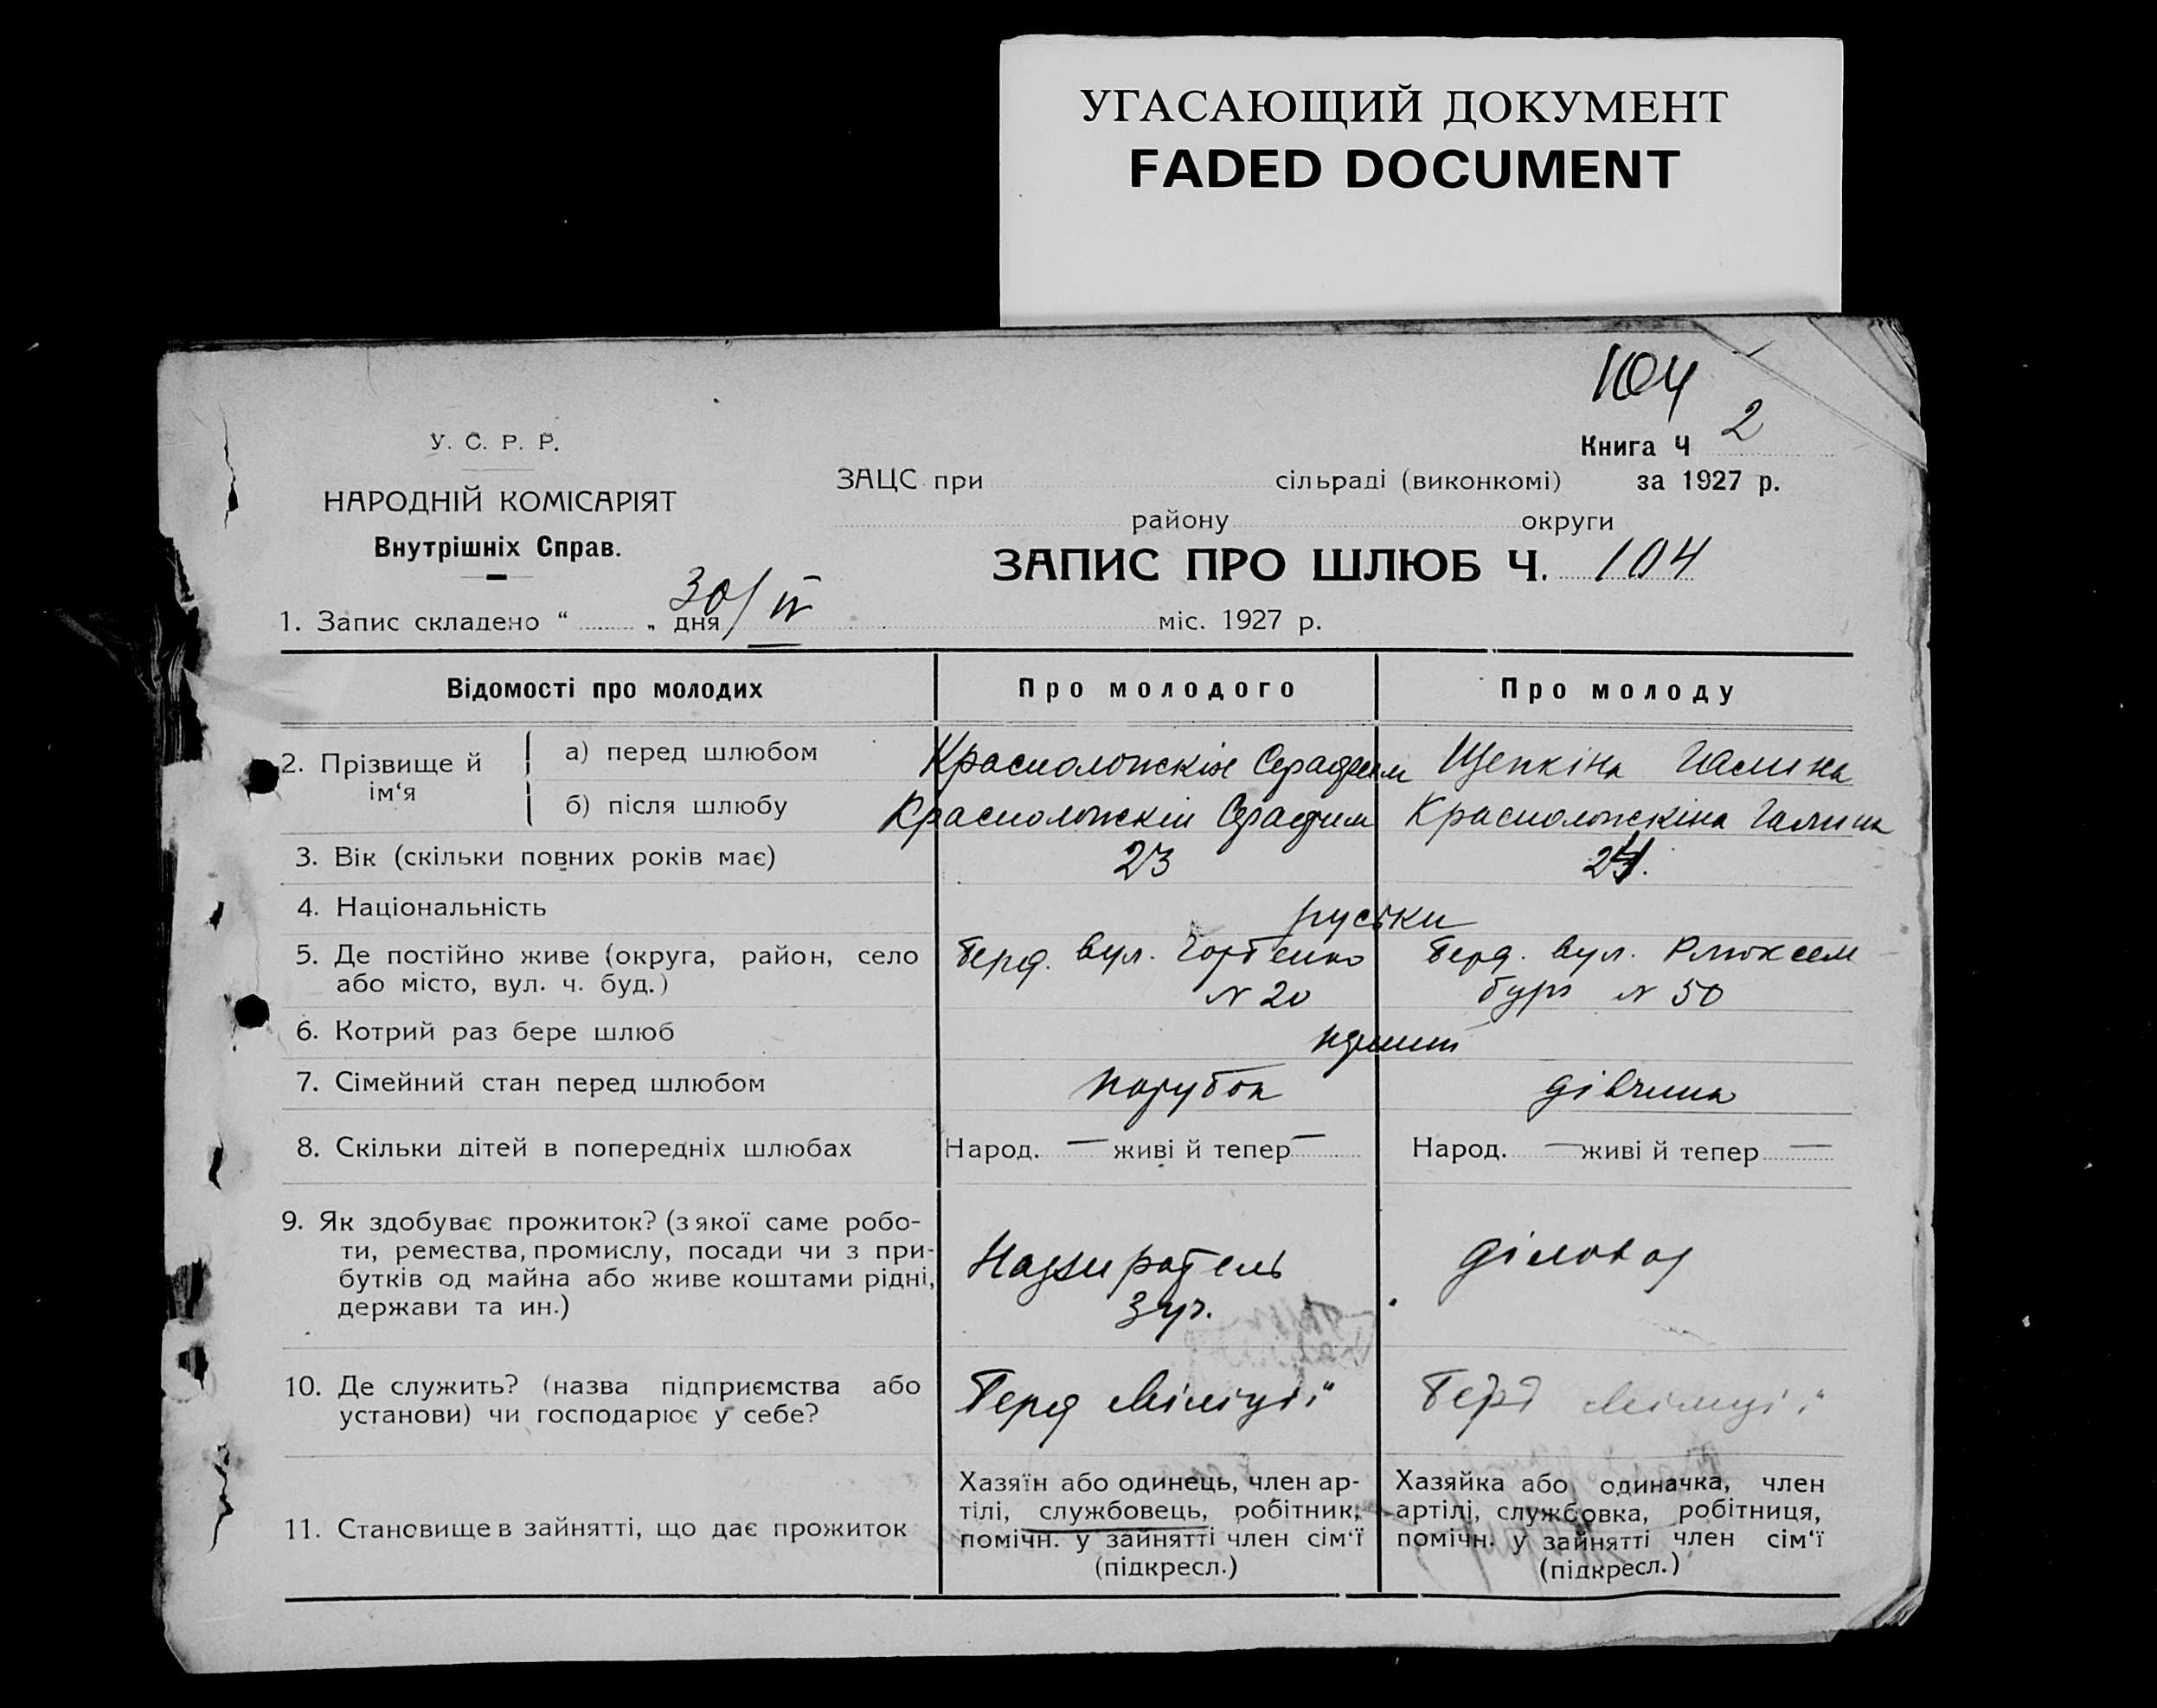 УГАСАЮЩИЙ ДОКУМЕНТ
FADED DOCUMENT
104
Книга Ч 2
У. С. Р. Р.
ЗАЦС при сільраді (виконкомі) за 1927 р.
НАРОДНІЙ КОМІСАРІЯТ
району округи
Внутрішніх Справ.
ЗАПИС ПРО ШЛЮБ Ч. 104
1. Запис складено “ „ дня 30/IV міс. 1927 р.
Відомості про молодих Про молодого Про молоду
2. Прізвище й ім‘я
а) перед шлюбом Серафим Щепкіна Галина
б) після шлюбу Серафим Галина
3. Вік (скільки повних років має) 23
4. Національність руськи
5. Де постійно живе (округа, район, село Берд. вул. Берд. вул. Рлюксем
або місто, вул. ч. буд.) N 20 бург N 50
6. Котрий раз бере шлюб
7. Сімейний стан перед шлюбом парубок дівчина
8. Скільки дітей в попередніх шлюбах Народ. — живі й тепер — Народ. — живі й тепер —
9. Як здобуває прожиток? (з якої саме робо-
ти, ремества, промислу, посади чи з при-
бутків од майна або живе коштами рідні,
держави та ин.)
Надзиратель
діловод
10. Де служить? (назва підприємства або
установи) чи господарює у себе?
Берд Міліції
Берд Міліції
11. Становище в зайнятті, що дає прожиток
Хазяїн або одинець, член ар-
тілі, службовець, робітник,
помічн. у зайнятті член сім‘ї
(підкресл.)
Хазяйка або одиначка, член
артілі, службовка, робітниця,
помічн. у зайнятті член сім‘ї
(підкресл.)